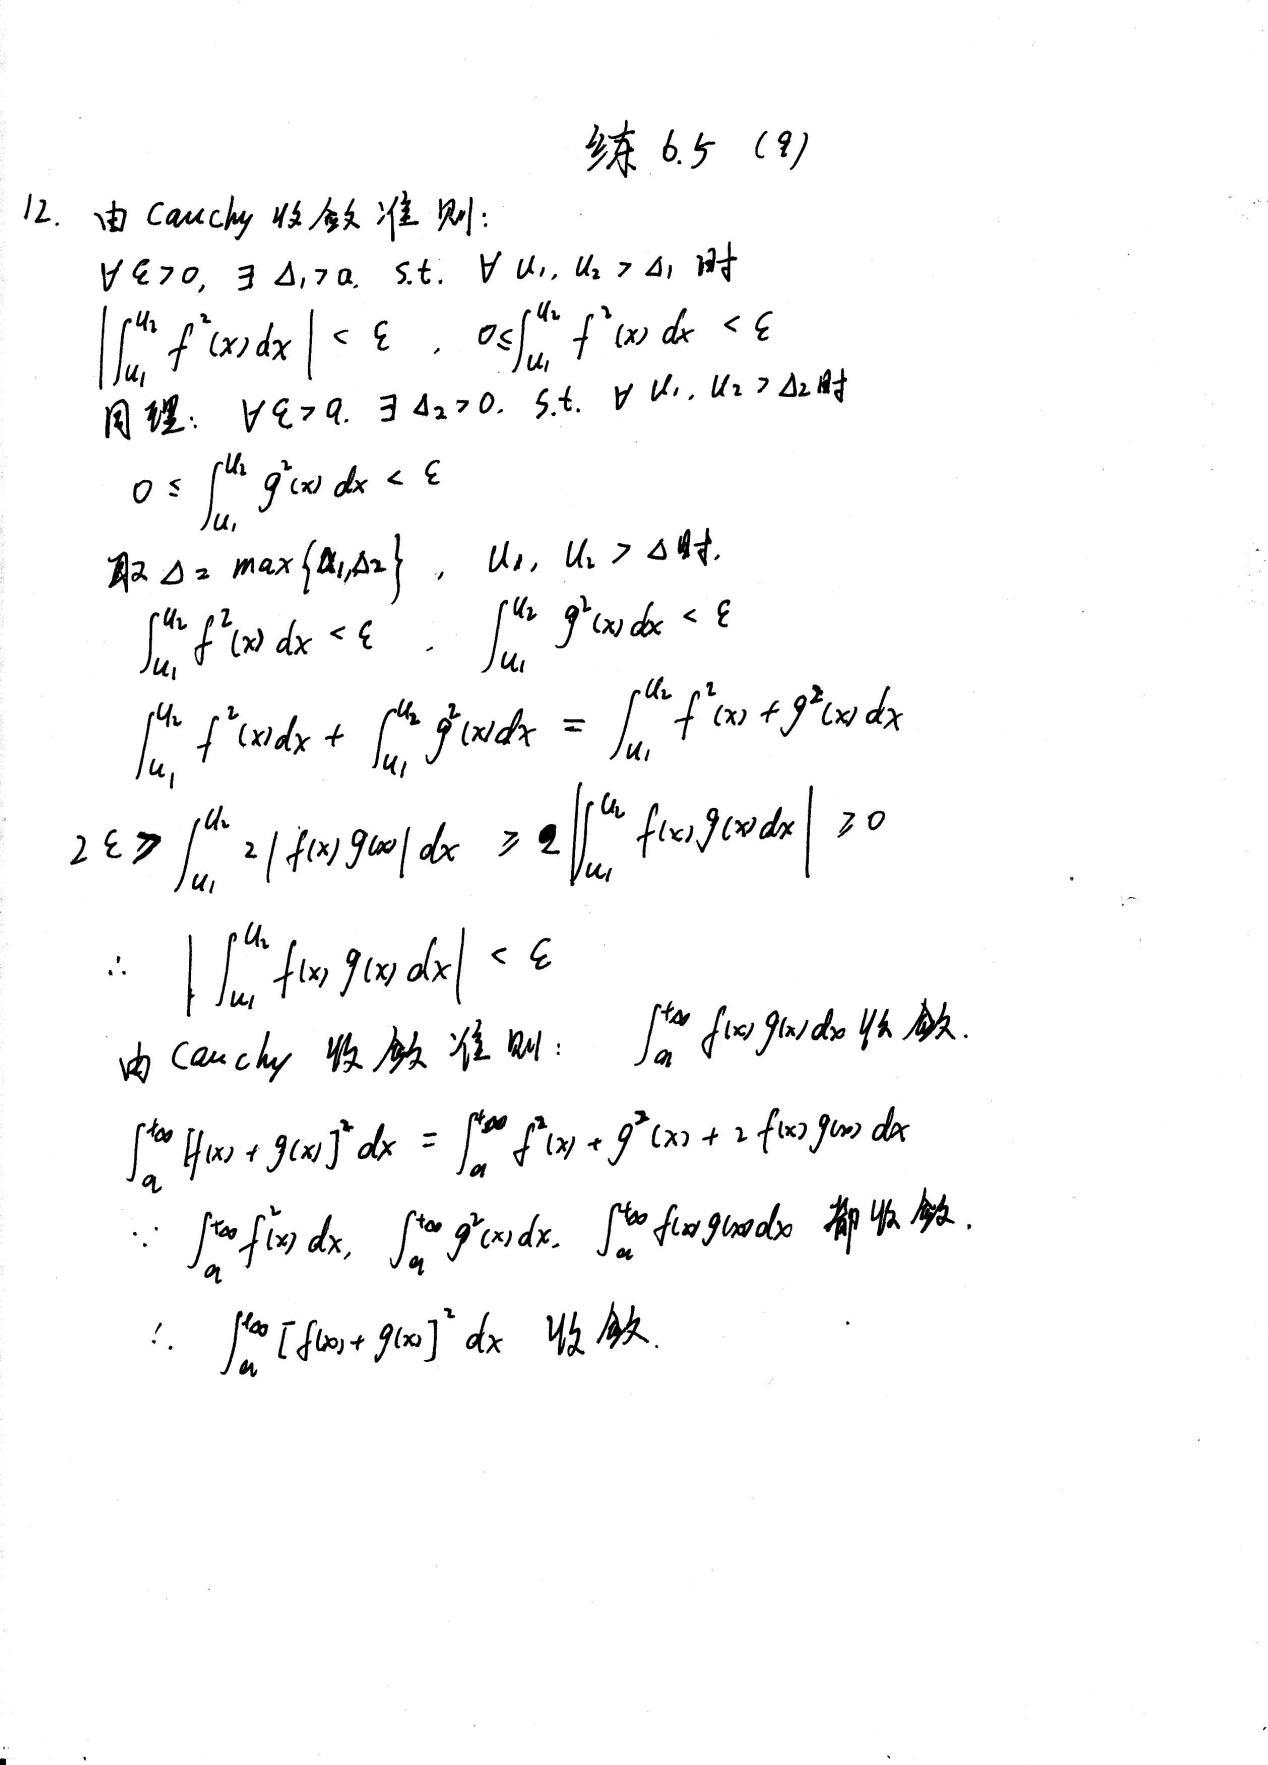 练 6.5 (9)
12. 由 Cauchy 收敛准则:
∀ε>0, ∃ Δ₁>a. s.t. ∀ u₁, u₂ > Δ₁ 时
|∫_{u₁}^{u₂} f²(x)dx| < ε , 0≤∫_{u₁}^{u₂} f²(x) dx < ε
同理: ∀ε>a. ∃ Δ₂>0. s.t. ∀ u₁, u₂ > Δ₂ 时
0 ≤ ∫_{u₁}^{u₂} g²(x) dx < ε
取 Δ = max{Δ₁,Δ₂} , u₁, u₂ > Δ 时.
∫_{u₁}^{u₂} f²(x) dx < ε . ∫_{u₁}^{u₂} g²(x) dx < ε
∫_{u₁}^{u₂} f²(x)dx + ∫_{u₁}^{u₂} g²(x)dx = ∫_{u₁}^{u₂} f²(x) + g²(x) dx
2ε ≥ ∫_{u₁}^{u₂} 2|f(x)g(x)| dx ≥ 2|∫_{u₁}^{u₂} f(x)g(x)dx| ≥0
∴ |∫_{u₁}^{u₂} f(x)g(x)dx| < ε
由 Cauchy 收敛准则: ∫_a^{+∞} f(x)g(x)dx 收敛.
∫_a^{+∞} [f(x)+g(x)]² dx = ∫_a^{+∞} f²(x) + g²(x) + 2f(x)g(x) dx
∵ ∫_a^{+∞} f²(x) dx, ∫_a^{+∞} g²(x)dx. ∫_a^{+∞} f(x)g(x)dx 都收敛.
∴ ∫_a^{+∞} [f(x)+g(x)]² dx 收敛.